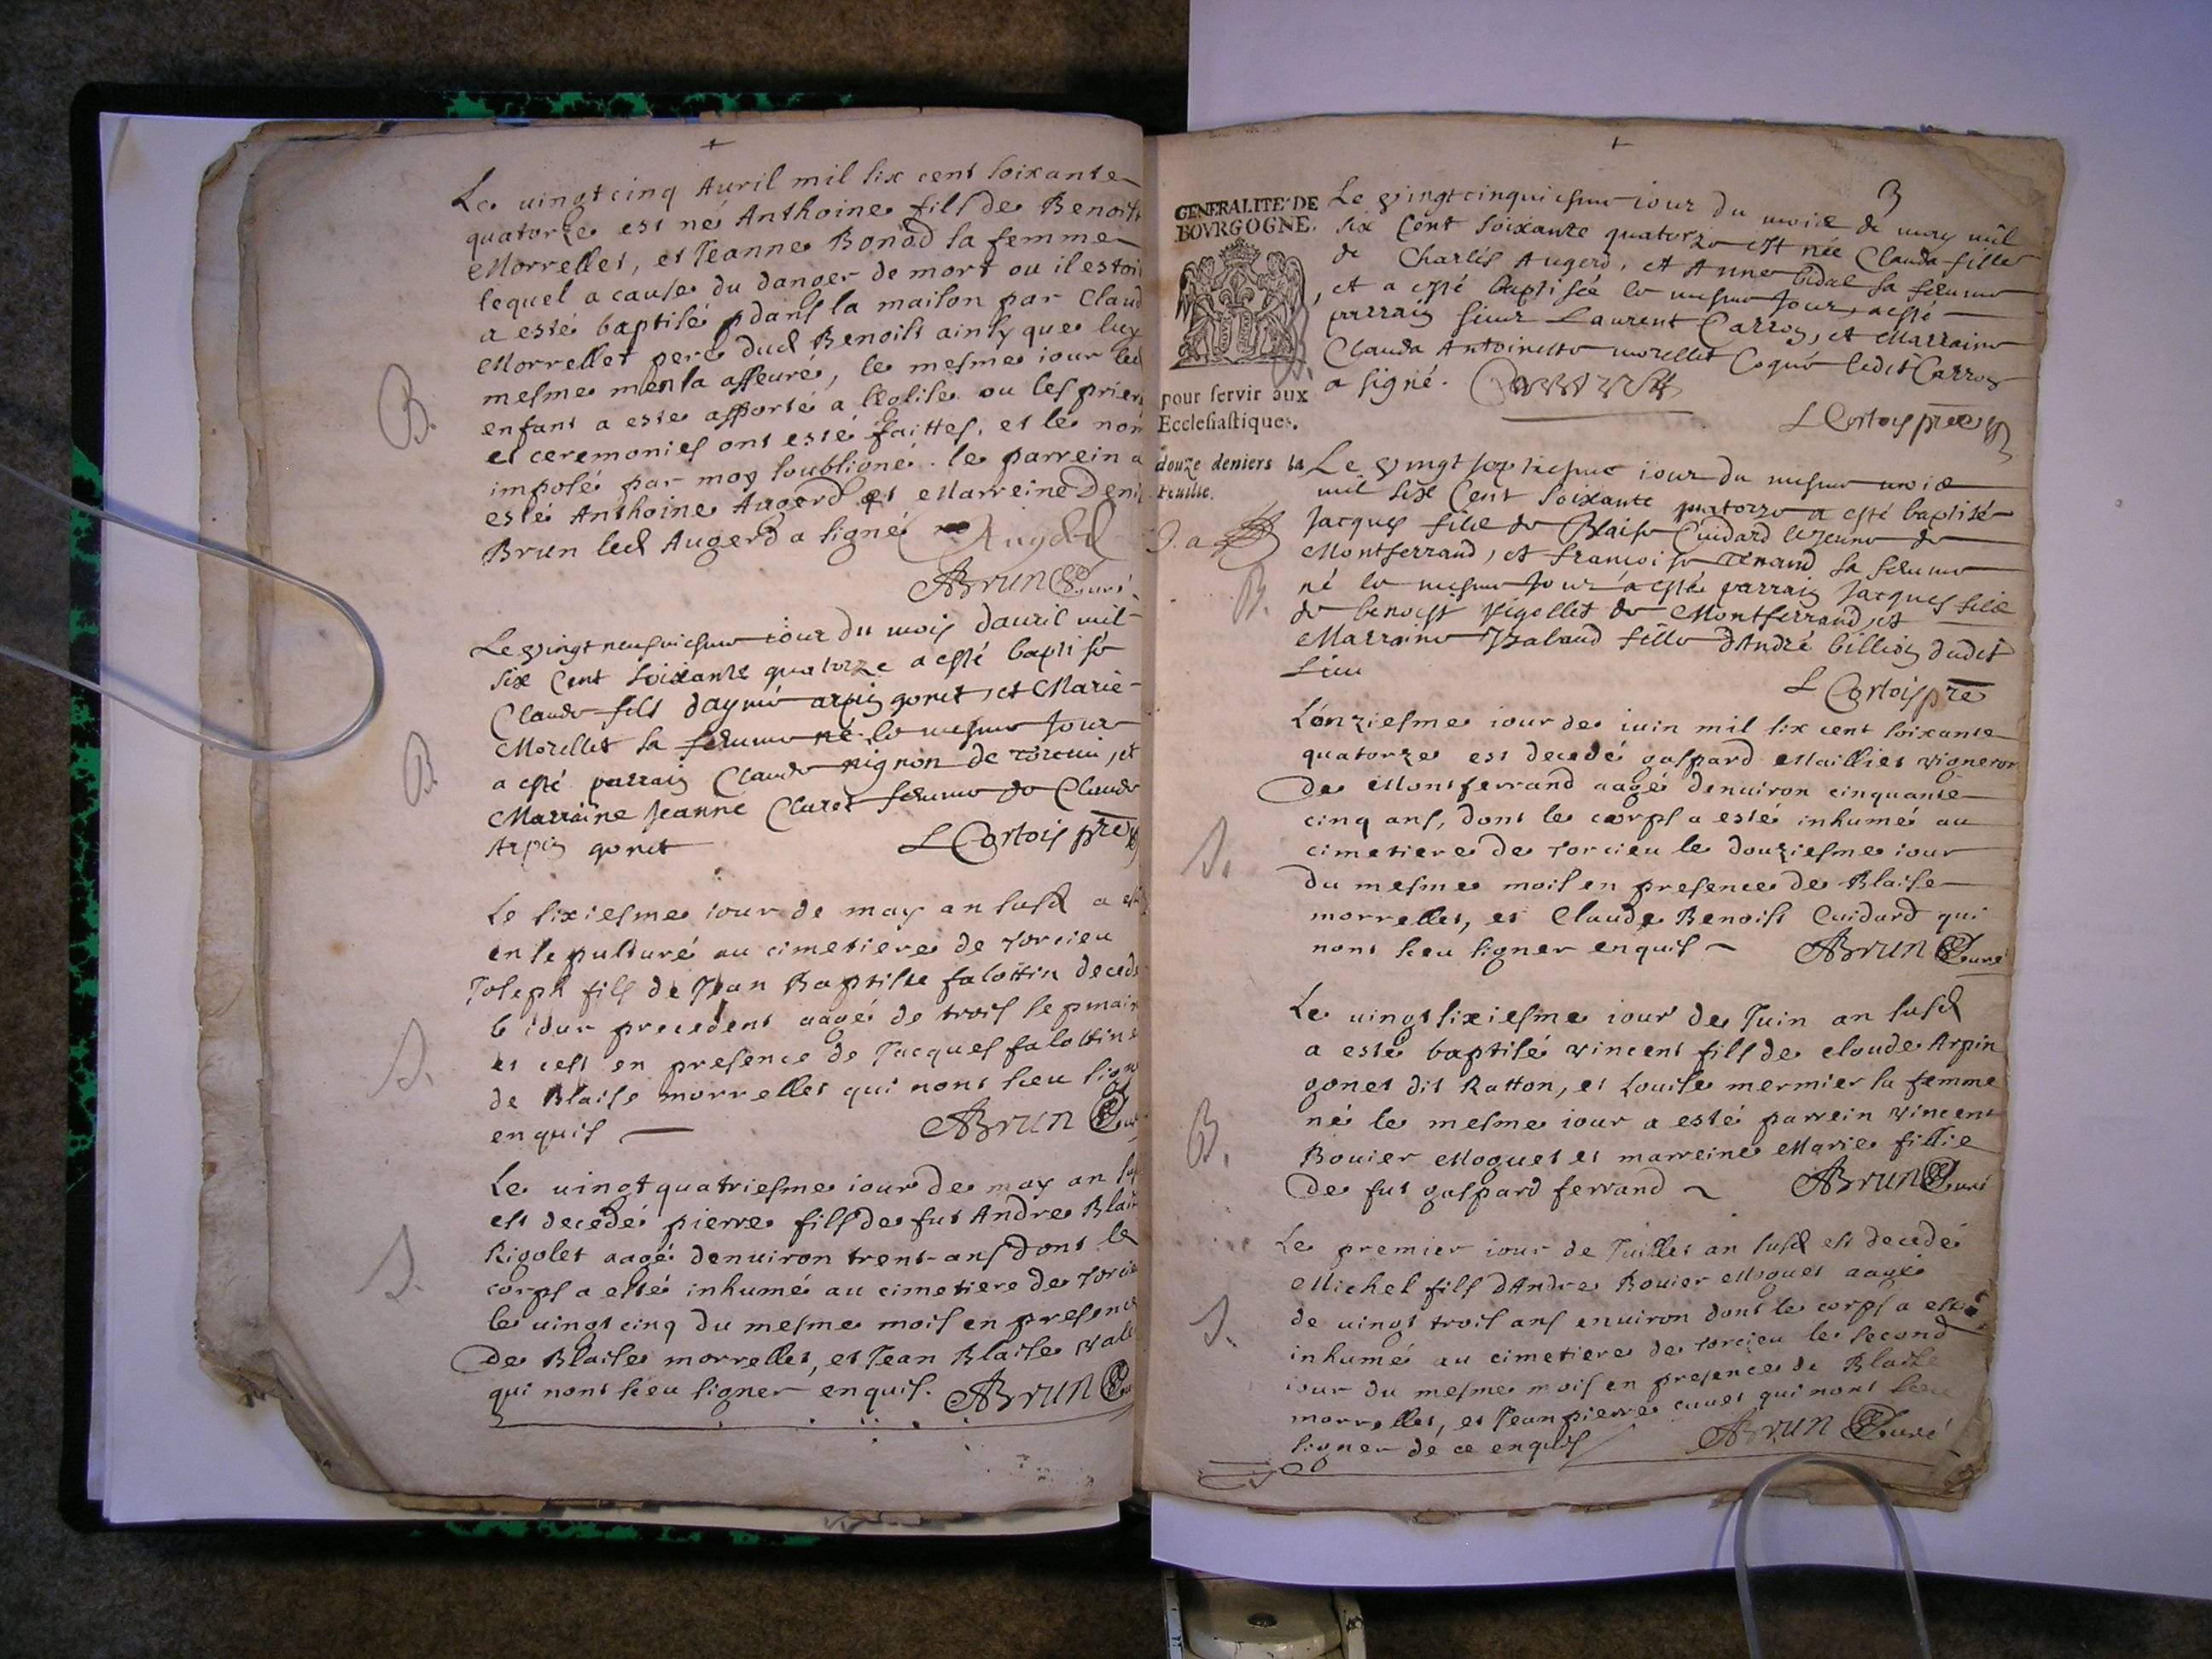 +
Le vingt cinq Auril mil six cent soixante
quatorze est né Anthoine fils de Benoist
Morrellet, et Jeanne Bonod sa femme
lequel a cause du danger de mort ou il estoi
a esté baptisé dans la maison par Claud
Morrellet pere dud Benoist ainsy que luy
mesme men a asseuré, le mesme iour led
enfant a esté apporté a leglise ou les prier
et ceremonies ont esté faittes, et le nom
imposé par moy soubsigné. le parrein a
esté Anthoine Augerd et Marreine Deni
Brun led Augerd a signé Augerd
B.
ABrun Curé.
Le vingt neufuiesme iour du mois dauril mil
six Cent soixante quatorze a esté baptisé
Claude fils daymé arpin gonet, et Marie
Morellet sa femme né le mesme Jour
a esté parrain Claude pignon de torcieu, et
Marraine Jeanne Claret femme de Claude
Arpin gonet L Cortois pre
B
Le sixiesme iour de may an susd a esté
ensepulturé au cimetiere de Torcieu
Joseph fils de Jean Baptiste falottin decedé
le iour precedent aagé de trois sepmain
et cest en presence de Jacques falottin e
de Blaise morrellet qui nont sceu sign
enquis ABrun Cur
S.
Le vingt quatriesme iour de may an sus
est decedé pierre fils de fut Andre Blai
Rigolet aagé denuiron trent-ans dont le
corps a esté inhumé au cimetiere de Torcie
le vingt cinq du mesme mois en presence
De Blaise morrellet, et Jean Blaise
qui nont sceu signer enquis. ABrun Cu
S.
+
3
GENERALITE DE
BOVRGOGNE.
pour servir aux
Ecclesiastiques.
douze deniers la
feuille.
Le vingt cinquiesme iour du mois de may mil
six Cent soixante quatorze est née Clauda fille
de Charles Augerd, et Anne Vidal sa femme
, et a esté baptisée le mesme Jour, a esté
parrain sieur Laurent Carron, et Marraine
Clauda Antoinette morellet Coqué ledit Carron
a signé.
L Cortois pre
B.
Le vingt septiesme iour du mesme mois
mil six Cent soixante quatorze a esté baptisé
Jacques fils de Blaise Cuidard le Jeune de
Montferrand, et francoise Tenand sa femme
né le mesme Jour a esté parrain Jacques fils
de benoist Rigollet de Montferrand, et
Marraine Ysabaud fille dAndré billion dudit
lieu
L Cortois pre
B.
Lonziesme iour de iuin mil six cent soixante
quatorze est decedé gaspard Maillier vigneron
De Montferrand aagé denuiron cinquante
cinq ans, dont le corps a esté inhumé au
cimetiere de Torcieu le douziesme iour
du mesme mois en presence de Blaise
morrellet, et Claude Benoist Cuidard qui
nont sceu signer enquis ABrun Curé
S.
Le vingt sixiesme iour de Juin an susd
a esté baptisé vincent fils de claude Arpin
gonet dit Ratton, et Louise mermier sa femme
né le mesme iour a esté parrein vincent
Bouier Moguet et marreine Marie fillie
De fut gaspard ferrand ABrun Curé
B.
Le premier iour de Juillet an susd est decedé
Michel fils dAndre Bouier Moguet aagé
de vingt trois ans enuiron dont le corps a esté
inhumé au cimetiere de torcieu le second
iour du mesme mois en presence de Blaise
morrellet, et Jean pierre cuuet qui nont sceu
signer de ce enquis ABrun Curé
S.